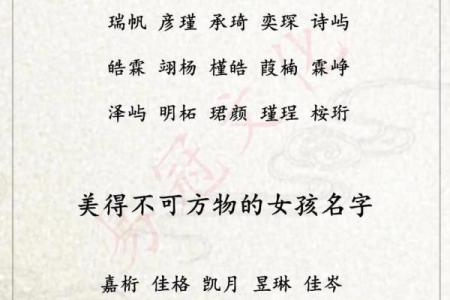 瑞帆 彦瑾 承琦 奕琛 诗屿
皓霖 翊杨 槿皓 葭楠 霖峥
泽屿 明柘 珺颜 瑾珵 桉珩
美得不可方物的女孩名字
嘉桁 佳格 凯月 昱琳 佳岑